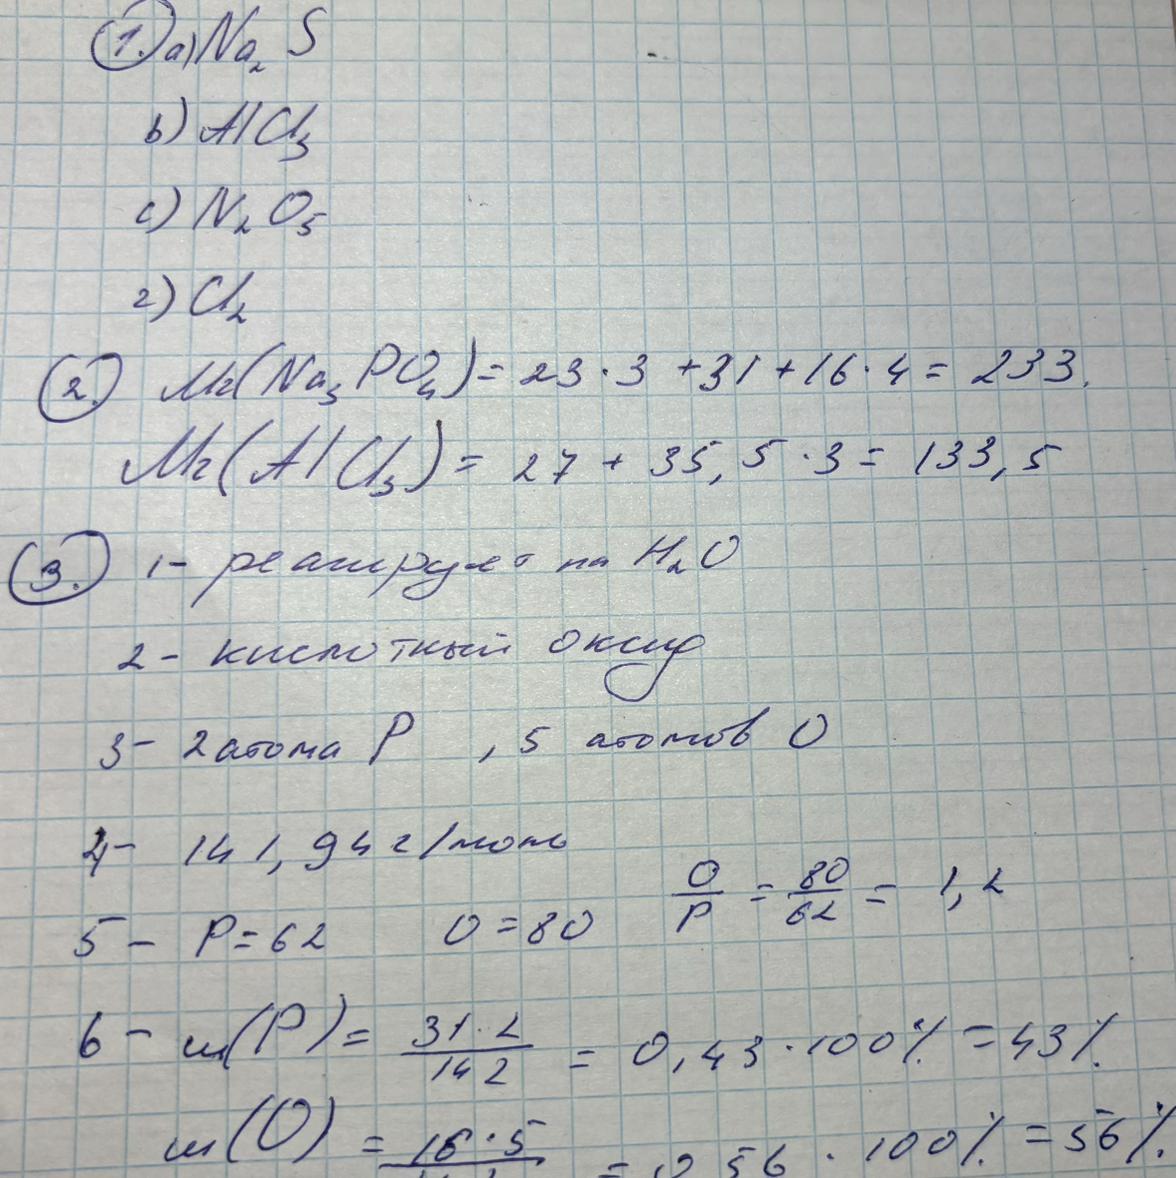 1. а) Na₂S
b) AlCl₃
c) N₂O₅
г) Cl₂
2. Mr(Na₃PO₄) = 23·3 + 31 + 16·4 = 233.
Mr(AlCl₃) = 27 + 35,5·3 = 133,5
3. 1- реагирует на H₂O
2- кислотный оксид
3- 2 атома P , 5 атомов O
4- 141,94 г/моль
5- P=62 O=80 O/P = 80/62 = 1,2
6- ω(P) = 31·2/142 = 0,43·100% = 43%.
ω(O) = 16·5 = 0,56·100% = 56%.